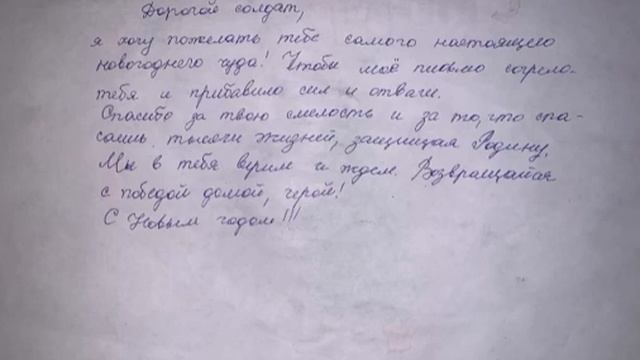 Дорогой солдат,
я хочу пожелать тебе самого настоящего
новогоднего чуда! Чтобы моё письмо согрело
тебя и прибавило сил и отваги.
Спасибо за твою смелость и за то, что спа-
саешь тысячи жизней, защищая Родину.
Мы в тебя верим и ждем. Возвращайся
с победой домой, герой!
С Новым годом!!!